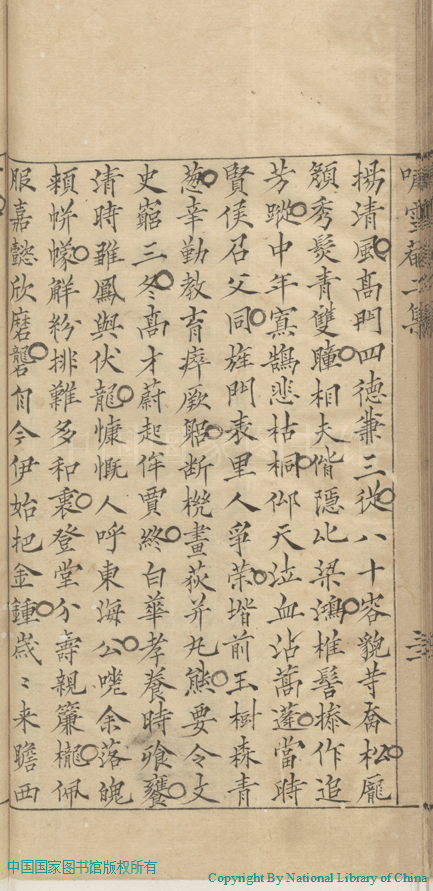 嘯雲菴二集
揚清風高門四德兼三從八十容貌等喬松龐
顏秀髮青雙瞳相夫偕隱比梁鴻椎髻操作追
芳蹤中年寡鵠悲枯桐仰天泣血沾蒿蓬當時
賢侯召父同旌門表里人爭榮堦前玉樹森青
蔥辛勤教育瘁厥躬断機畫荻并丸熊要令文
史窮三冬高才蔚起侔賈終白華孝養時飱饔
清時雖鳳與伏龍慷慨人呼東海公嗟余落魄
賴帡幪觧紛排難多和衷登堂分壽親簾櫳佩
服嘉懿欣磨礲自今伊始把金鍾歲〻来瞻西
三
中国国家图书馆
中国国家图书馆版权所有
Copyright By National Library of China